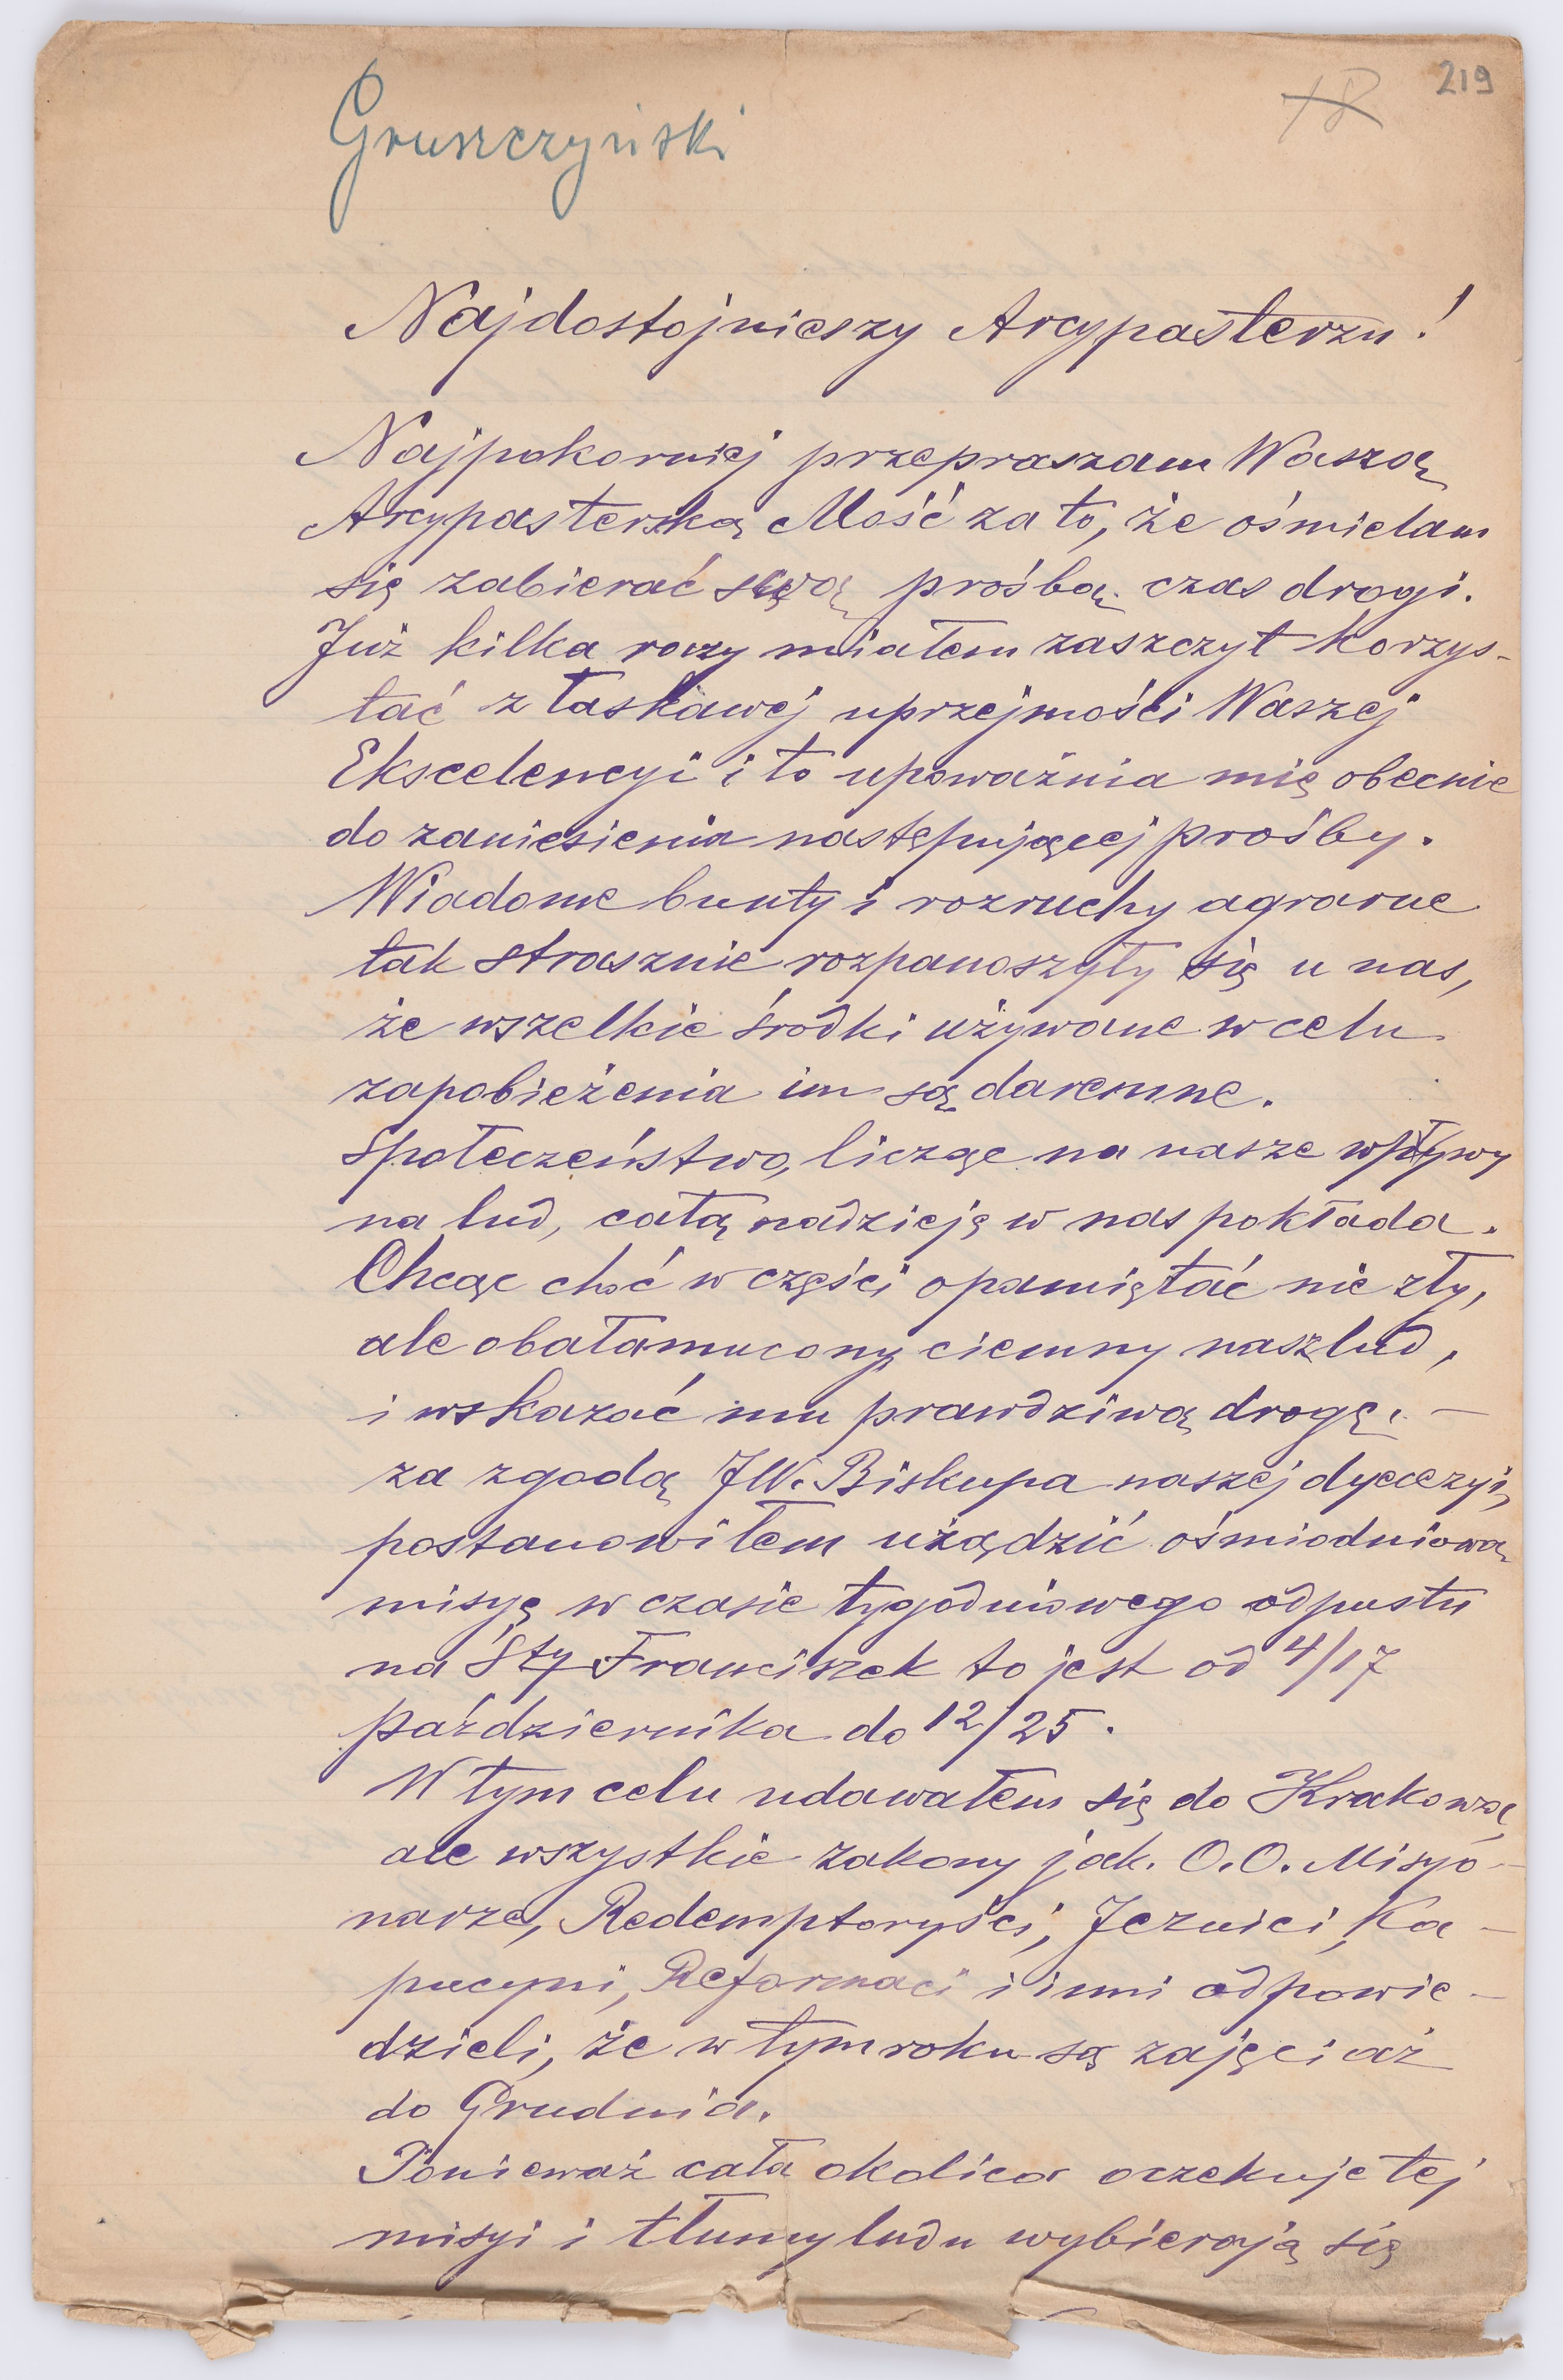 219
18
Gruszczyński
Najdostojnieszy Arcypasterzu!
Najpokorniej przepraszam Waszą
Arcypasterską Mość za to, że ośmielam
się zabierać swą prośbą czas drogi.
Już kilka razy miałem zaszczyt korzys-
tać z łaskawej uprzejmości Waszej
Ekscelencyi i to upoważnia mię obecnie
do zaniesienia następującej prośby.
Wiadome bunty i rozruchy agrarne
tak strasznie rozpanoszyły się u nas,
że wszelkie środki używane w celu
zapobieżenia im są daremne.
Społeczeństwo, licząc na nasze wpływy
na lud, całą nadzieję w nas pokłada.
Chcąc choć w części opamiętać nie zły,
ale obałamucony ciemny nasz lud,
i wskazać mu prawdziwą drogę, —
za zgodą JW. Biskupa naszej dyecezyi,
postanowiłem użądzić ośmiodniową
misyę w czasie tygodniowego odpustu
na Śty Franciszek to jest od 4/17
października do 12/25.
W tym celu udawałem się do Krakowa,
ale wszystkie zakony jak. O.O. Misyo-
narze, Redemptoryści, Jezuici, Ka-
pucyni, Reformaci i inni odpowie-
dzieli, że w tym roku są zajęci aż
do Grudnia.
Ponieważ cała okolica oczekuje tej
misyi i tłumy ludu wybierają się